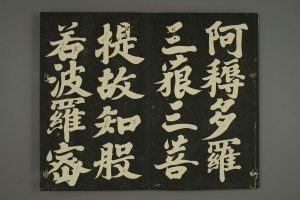 阿耨多羅
三藐三菩
提故知般
若波羅蜜